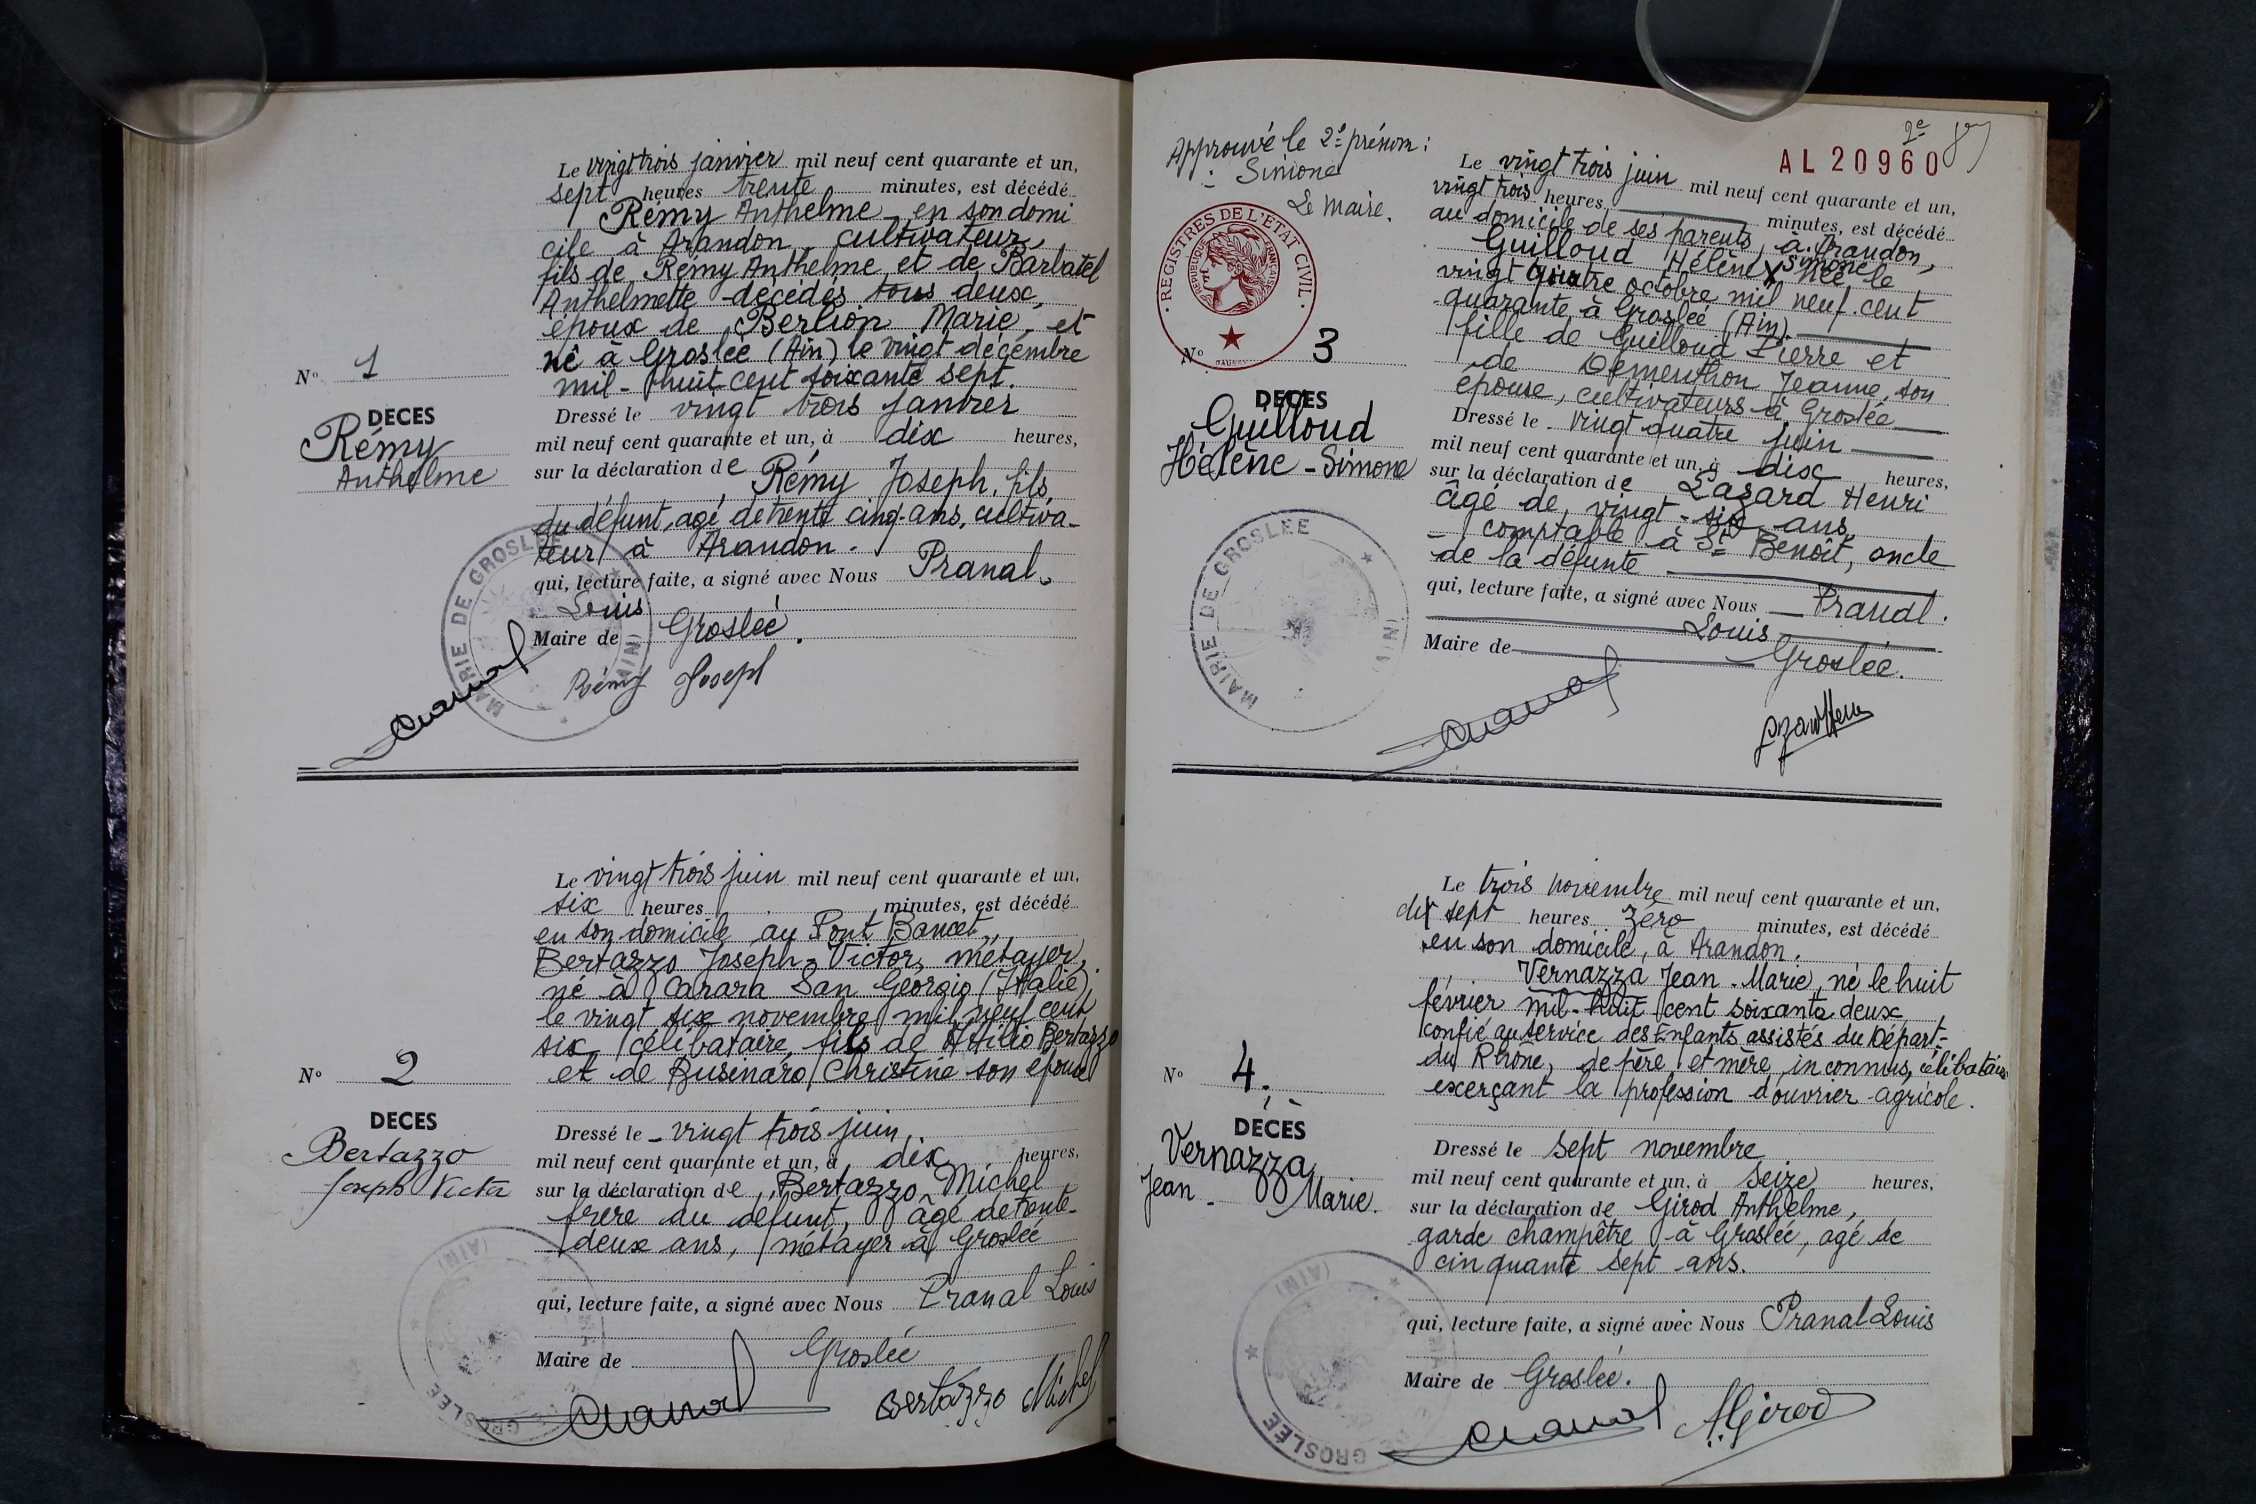 Le vingt trois janvier mil neuf cent quarante et un,
sept heures trente minutes, est décédé
Rémy Anthelme en son domi
cile à Arandon, cultivateur,
fils de Rémy Anthelme et de Barbatel
Anthelmette décédés tous deux,
époux de Berlion Marie, et
né à Groslée (Ain) le vingt décembre
mil-huit-cent soixante sept.
N° 1
DECES
Rémy
Anthelme
Dressé le vingt trois janvier
mil neuf cent quarante et un, à dix heures,
sur la déclaration de Rémy Joseph, fils
du défunt, agé de trente cinq ans, cultiva-
teur à Arandon.
qui, lecture faite, a signé avec Nous Pranal
Louis
Maire de Groslée.
MAIRIE DE GROSLÉE (AIN)
Rémy Joseph
Le vingt trois juin mil neuf cent quarante et un,
six heures minutes, est décédé
en son domicile au Pont Bancet,
Bertazzo Joseph-Victor, métayer,
né à Carara San Géorgio (Italie)
le vingt six novembre mil neuf cent
six célibataire, fils de Attilio Bertazzo
et de Businaro Christine son épouse
N° 2
DECES
Bertazzo
Joseph Victor
Dressé le vingt trois juin
mil neuf cent quarante et un, à dix heures,
sur la déclaration de Bertazzo Michel
frère du défunt, âgé de trente-
deux ans, métayer à Groslée
qui, lecture faite, a signé avec Nous Pranal Louis
Maire de Groslée
MAIRIE DE GROSLÉE (AIN)
Bertazzo Michel
Approuvé le 2e prénom :
Simone
Le Maire.
2e
AL 20960
REGISTRES DE L'ÉTAT CIVIL
RÉPUBLIQUE FRANÇAISE
Le vingt trois juin mil neuf cent quarante et un,
vingt trois heures minutes, est décédé
au domicile de ses parents, à Arandon,
Guilloud Hélène X Simone née le
vingt quatre octobre mil neuf cent
quarante à Groslée (Ain)
fille de Guilloud Pierre et
de Dementhon Jeanne, son
épouse, cultivateurs à Groslée
N° 3
DECES
Guilloud
Hélène-Simone
Dressé le vingt quatre juin
mil neuf cent quarante et un, à dix heures,
sur la déclaration de Lazard Henri
âgé de vingt-six ans,
comptable à St Benoît, oncle
de la défunte
qui, lecture faite, a signé avec Nous Pranal.
Louis
Maire de Groslée.
MAIRIE DE GROSLÉE (AIN)
Le trois novembre mil neuf cent quarante et un,
dix sept heures zéro minutes, est décédé
en son domicile, à Arandon,
Vernazza Jean-Marie, né le huit
février mil-huit cent soixante deux,
confié au service des Enfants assistés du Départ-
du Rhône, de père et mère inconnus, célibataire
exerçant la profession d'ouvrier agricole.
N° 4.
DÉCÈS
Vernazza
Jean-Marie.
Dressé le sept novembre
mil neuf cent quarante et un, à seize heures,
sur la déclaration de Girod Anthelme,
garde champêtre à Groslée, agé de
cinquante sept ans.
qui, lecture faite, a signé avec Nous Pranal Louis
Maire de Groslée.
MAIRIE DE GROSLÉE (AIN)
A. Girod